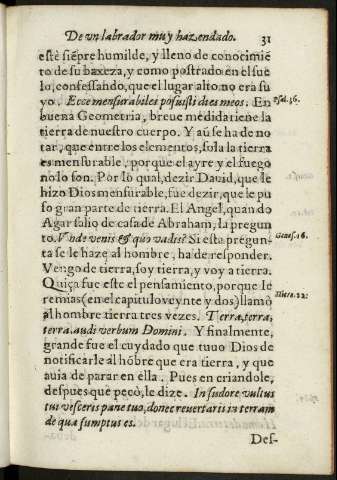 De vn labrador muy hazendado. 31
estè siẽpre humilde, y lleno de conocimiẽ
to de su baxeza, y como postrado en el sue
lo, confessando, que el lugar alto no era su
yo. Ecce mensurabiles posuisti dies meos. En Psal. 36.
buena Geometria, breue medida tiene la
tierra de nuestro cuerpo. Y aũ se ha de no
tar, que entre los elementos, sola la tierra
es mensurable, porque el ayre y el fuego
no lo son. Por lo qual, dezir Dauid, que le
hizo Dios mensurable, fue dezir, que le pu
so gran parte de tierra. El Angel, quando
Agar salio de casa de Abraham, la pregun
to. Vnde venis & quo vadis? Si esta pregun- Genes. 16.
ta se le haze al hombre, ha de responder.
Vengo de tierra, soy tierra, y voy a tierra.
Quiça fue este el pensamiento, porque Ie
remias (en el capitulo veynte y dos) llamò Hiere. 22.
al hombre tierra tres vezes. Terra, terra,
terra. audi verbum Domini. Y finalmente,
grande fue el cuydado que tuuo Dios de
notificarle al hõbre que era tierra, y que
auia de parar en ella. Pues en criandole,
despues que pecò, le dize. In sudore vultus
tui vesceris pane tuo, donec reuertaris in terram
de qua sumptus es.
Des-